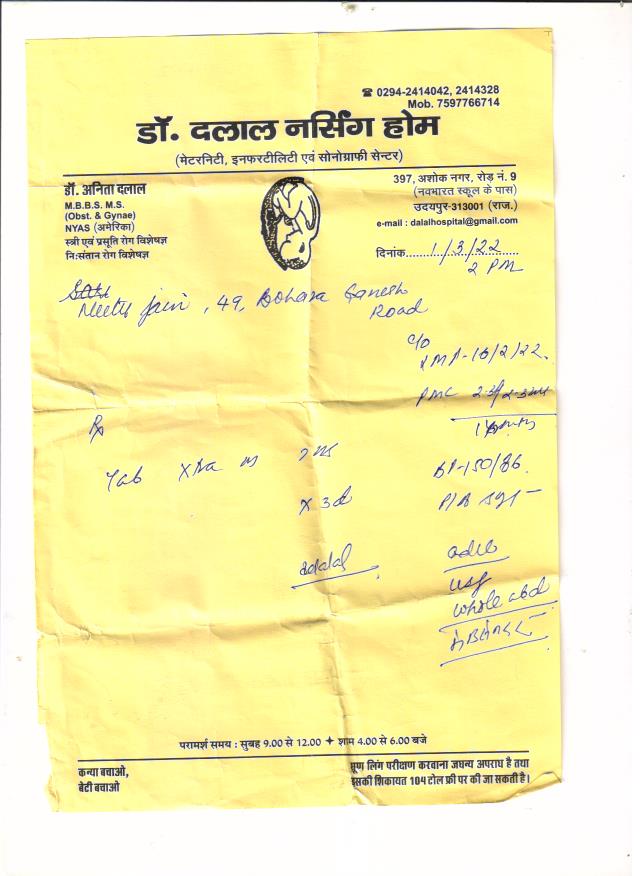 ☎ 0294-2414042, 2414328
Mob. 7597766714
डॉ. दलाल नर्सिंग होम
(मेटरनिटी, इनफरटीलिटी एवं सोनोग्राफी सेन्टर)
डॉ. अनिता दलाल
M.B.B.S. M.S.
(Obst. & Gynae)
NYAS (अमेरिका)
स्त्री एवं प्रसूति रोग विशेषज्ञ
नि:संतान रोग विशेषज्ञ
397, अशोक नगर, रोड़ नं. 9
(नवभारत स्कूल के पास)
उदयपुर-313001 (राज.)
e-mail : dalalhospital@gmail.com
दिनांक 1/3/22
2 PM
Neetu Jain, 49, Bohara Ganesh
Road
c/o
LMP-16/2/22
PMC
Rx
Tab
x 3d
BP-150/86
P/A
adalal
adv
usg
whole abd
परामर्श समय : सुबह 9.00 से 12.00 ✦ शाम 4.00 से 6.00 बजे
कन्या बचाओ,
बेटी बचाओ
भ्रूण लिंग परीक्षण करवाना जघन्य अपराध है तथा
इसकी शिकायत 104 टोल फ्री पर की जा सकती है।